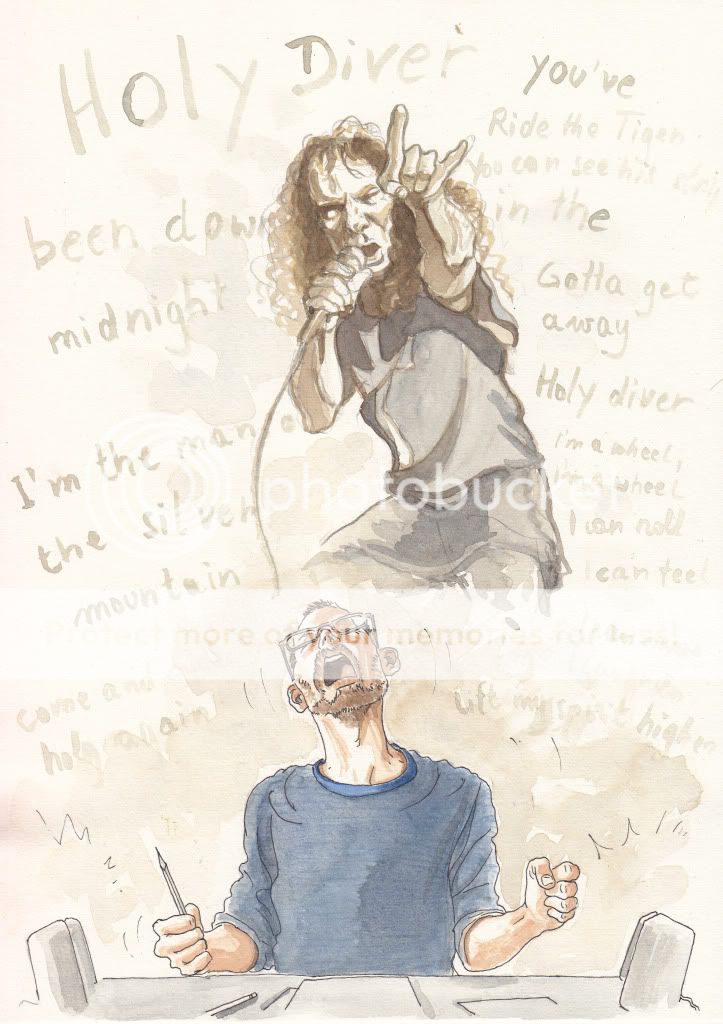 Holy Diver
you've
been down
midnight
in the
Ride the Tiger
You can see his
Gotta get
away
Holy diver
I'm the man o
the silver
mountain
i'm a wheel,
I'm a wheel
I can roll
I can feel
come and
holy again
lift my spirit higher
photobucket
Protect more of your memories for less!